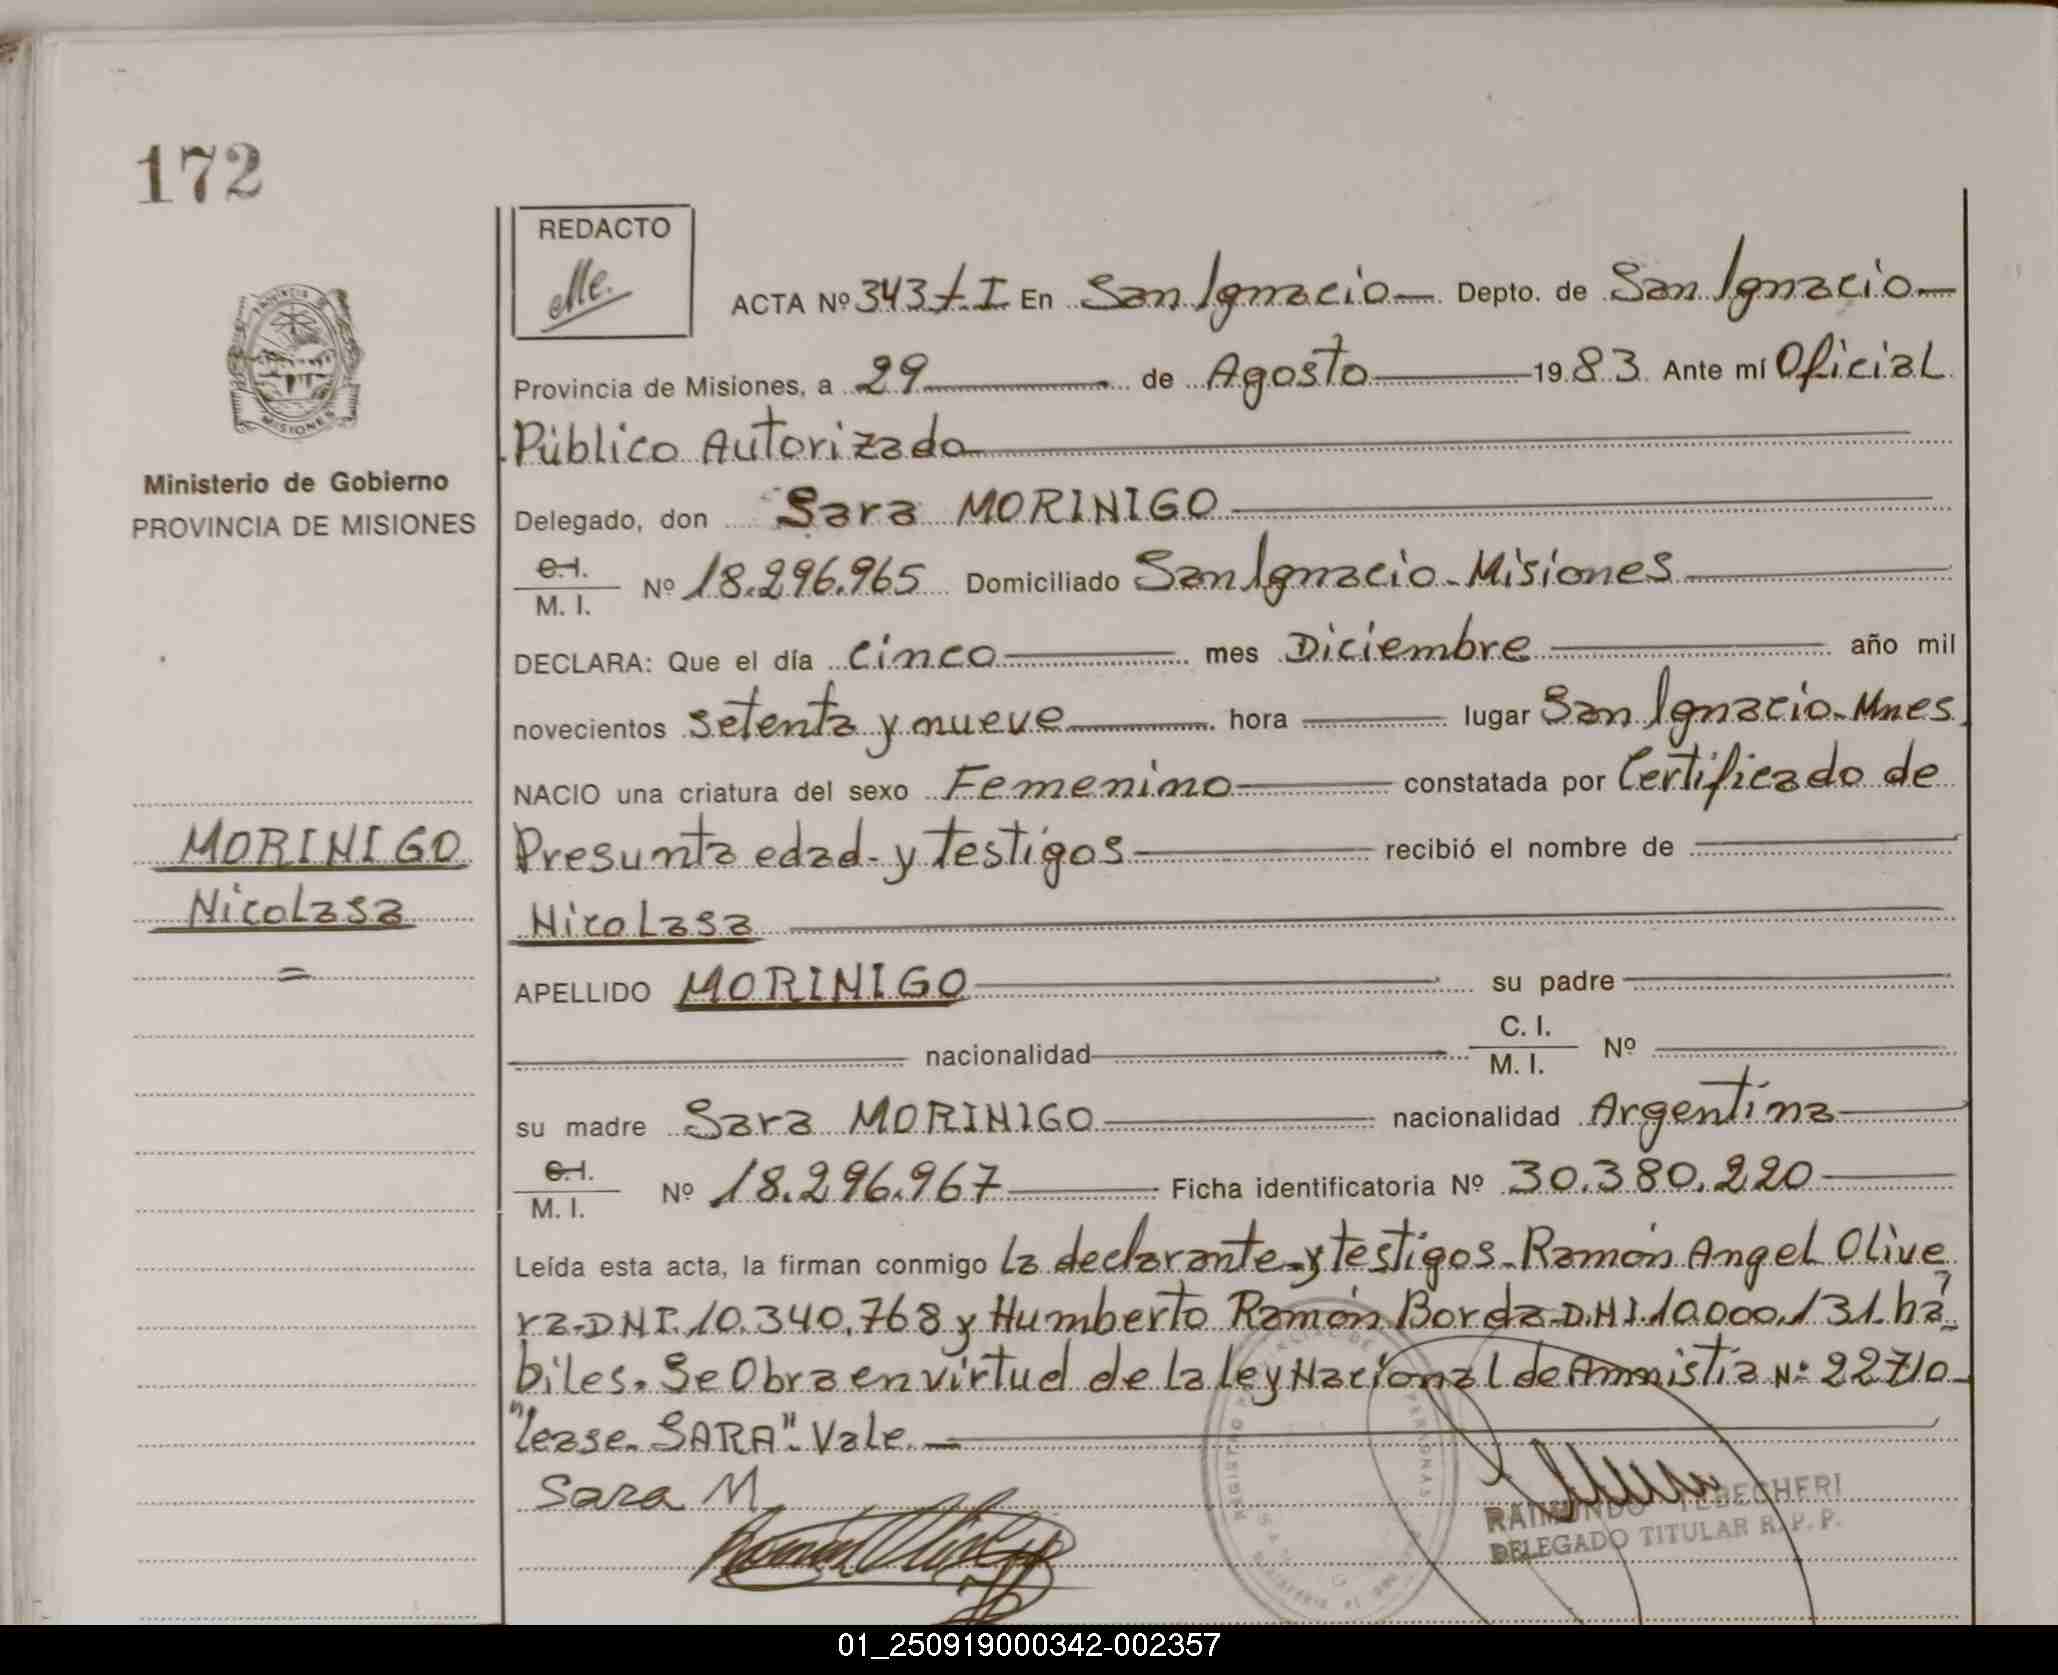 172
REDACTO
Me.
ACTA Nº 343 t. I En San Ignacio Depto. de San Ignacio
Provincia de Misiones, a 29 de Agosto 1983 Ante mí Oficial
Público Autorizado
Ministerio de Gobierno
PROVINCIA DE MISIONES
Delegado, don Sara MORINIGO
C.I.
M. I. Nº 18.296.965 Domiciliado San Ignacio - Misiones
DECLARA: Que el día cinco mes Diciembre año mil
novecientos setenta y nueve hora lugar San Ignacio - Mnes
NACIO una criatura del sexo Femenino constatada por Certificado de
Presunta edad - y testigos recibió el nombre de
MORINIGO
Nicolasa
=
Nicolasa
APELLIDO MORINIGO su padre
nacionalidad C. I.
M. I. Nº
su madre Sara MORINIGO nacionalidad Argentina
C.I.
M. I. Nº 18.296.967 Ficha identificatoria Nº 30.380.220
Leída esta acta, la firman conmigo la declarante - y testigos - Ramón Angel Olive
ra - DNI. 10.340.768 y Humberto Ramón Borda - D.N.I. 10.000.131. há
biles. Se Obra en virtud de la ley Nacional de Amnistia Nº 22710
"lease. SARA". Vale.
Sara M
RAIMUNDO TEBECHERI
DELEGADO TITULAR R. P. P.
01_250919000342-002357